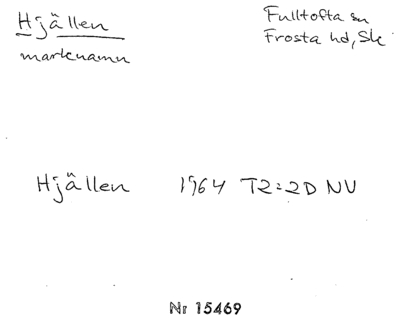 Hjällen
Fulltofta sn
marknamn
Frosta hd, Sk
Hjällen 1964 T2:2D NV
Nr 15469